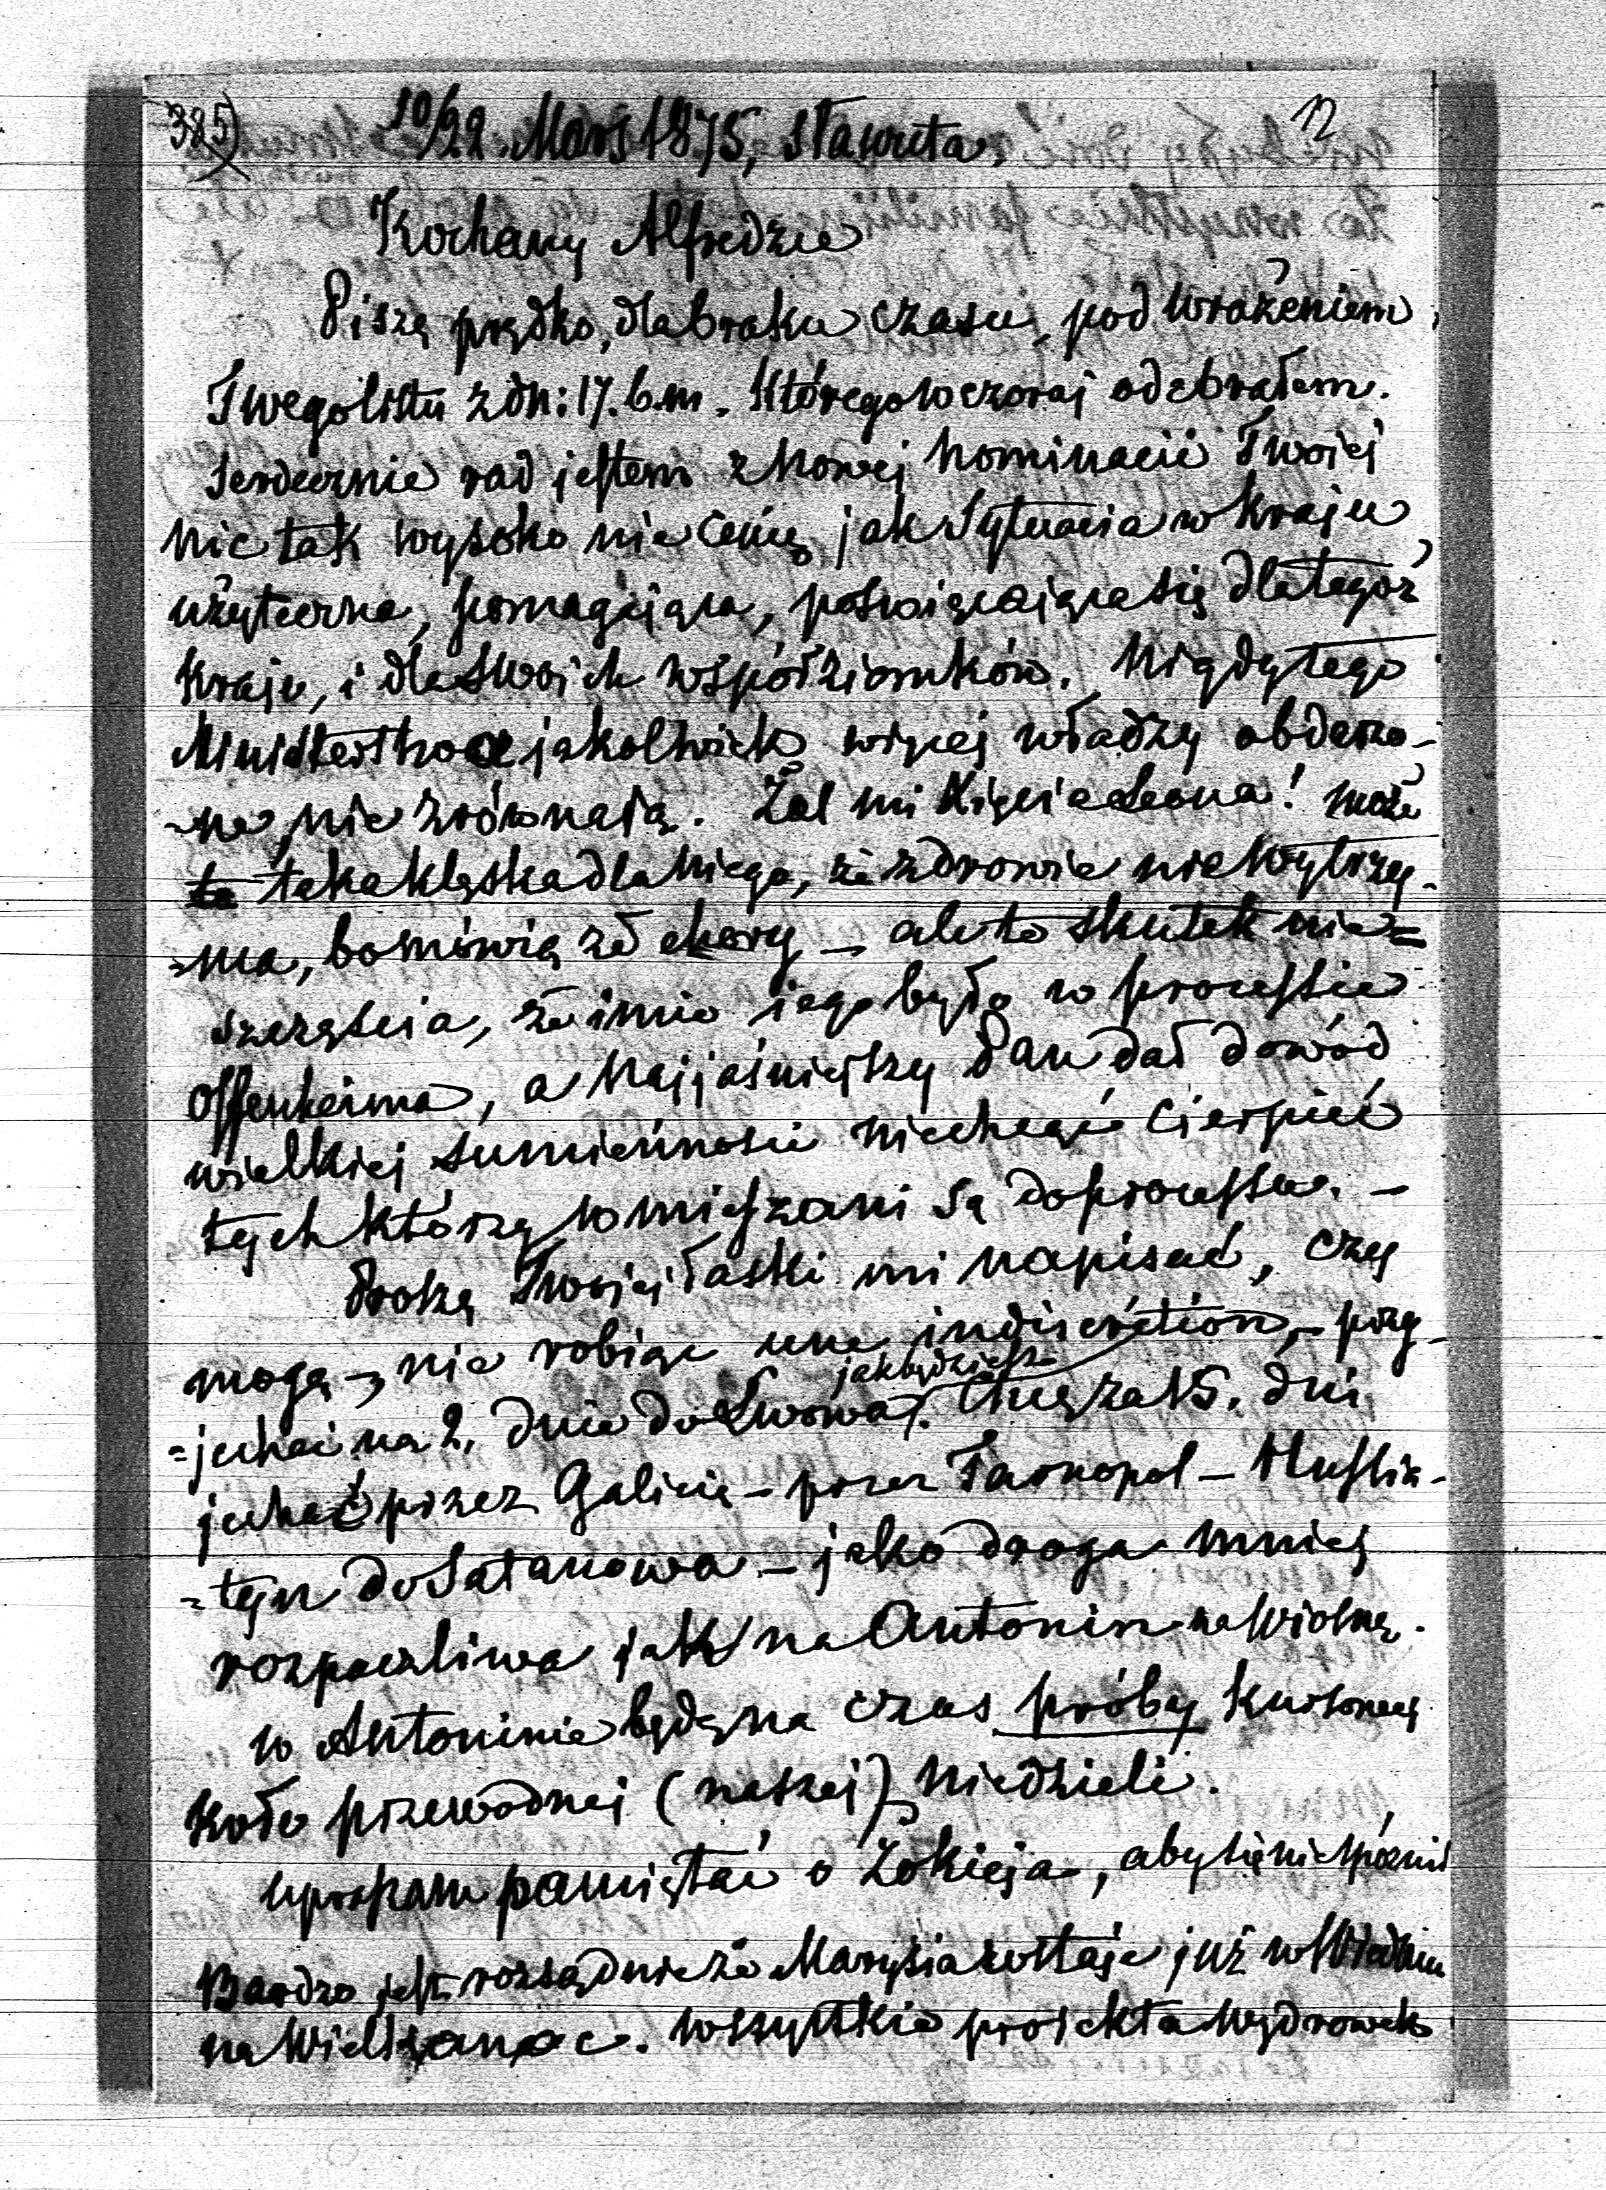 385) 10/22. Mars 1875, Sławuta. 12
Kochany Alfredzie
Piszę prędko, dla braku czasu, pod wrażeniem
Twego listu z dn: 17. b.m. którego wczoraj odebrałem.
Serdecznie rad jestem z nowej nominacii Twojej
nic tak wysoko nie cenię jak sytuacia w kraju
użyteczna, pomagająca, poświęcająca się dla tegoż
kraju, i dla swoich współziomków. Nigdy tego
Ministerstwa jakolwiek więcej władzy obdarzo-
-ne, nie zrównają. Żal mi Xięcia Leona! może
te taka klęska dla niego, że zdrowie nie wytrzy-
-ma, bo mówią że chory – ale to skutek nie=
szczęścia, że imie jego było w processie
Offenheima, a Najjaśniejszy Pan dał dowód
wielkiej sumienności niechcąc cierpieć
tych którzy wmięszani są do processu. –
Proszę Twojej łaski mi napisać, czy
mogę –, nie robiąc une indiscrétion, – przy-
jakbędziesz
=jechać na 2. dnie do Lwowa. Chcę za 15. dni
jechać przez Galicię – przez Tarnopol – Hussia-
=tyn do Satanowa – jako droga mniej
rozpaczliwa jak na Antonin na wiosnę.
w Antoninie będę na czas próby kursowej
koło przewodnej (naszej) niedzieli.
upraszam pamiętać o Żokieja, aby się nie spóźnił
Bardzo jest rozsądnie że Marysia zostaje już w Wiedniu
na Wielkanoc. wszystkie projekta wędrowek